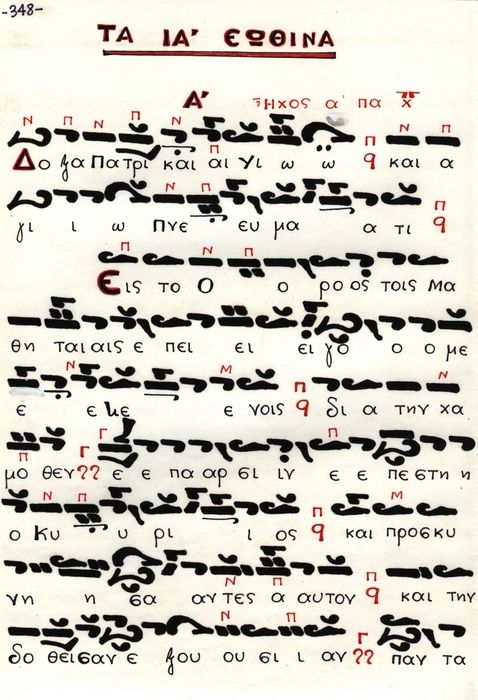 -348-
ΤΑ ΙΑ' ΕΩΘΙΝΑ
Α' Ηχος α' πα
Δοξα Πατρι και αι γι ω ω και α
γι ι ω πνε ευ μα α τι
Εις το ο ο ρο ος τοις μα
θη ταιαις ε πει ει ει γο ο ο με
ε ε νε ε νοις δι α την χα
μο θεν ε ε πα αρ σι ιν ε ε πε στη η
ο κυ υ ρι ι ος και προσκυ
νη η σα αντες α αυτον και την
δο θεισαν ε ξου ου σι ι αν παν τα